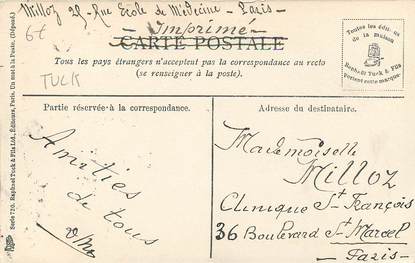 Milloz 21 - Rue Ecole de Médecine - Paris -
- Imprimé -
6€
CARTE POSTALE
Tous les pays étrangers n'acceptent pas la correspondance au recto
(se renseigner à la poste).
TUCK
Toutes les édit. de la maison
Raphaël Tuck & Fils
Portent cette marque.
Partie réservée à la correspondance.
Adresse du destinataire.
Amitiés
de tous
Mademoiselle
Milloz
Clinique St François
36 Boulevard St Marcel
- Paris -
Serie 735. Raphael Tuck & Fils Ltd., Editeurs, Paris. Un mot à la Poste. (Déposé).